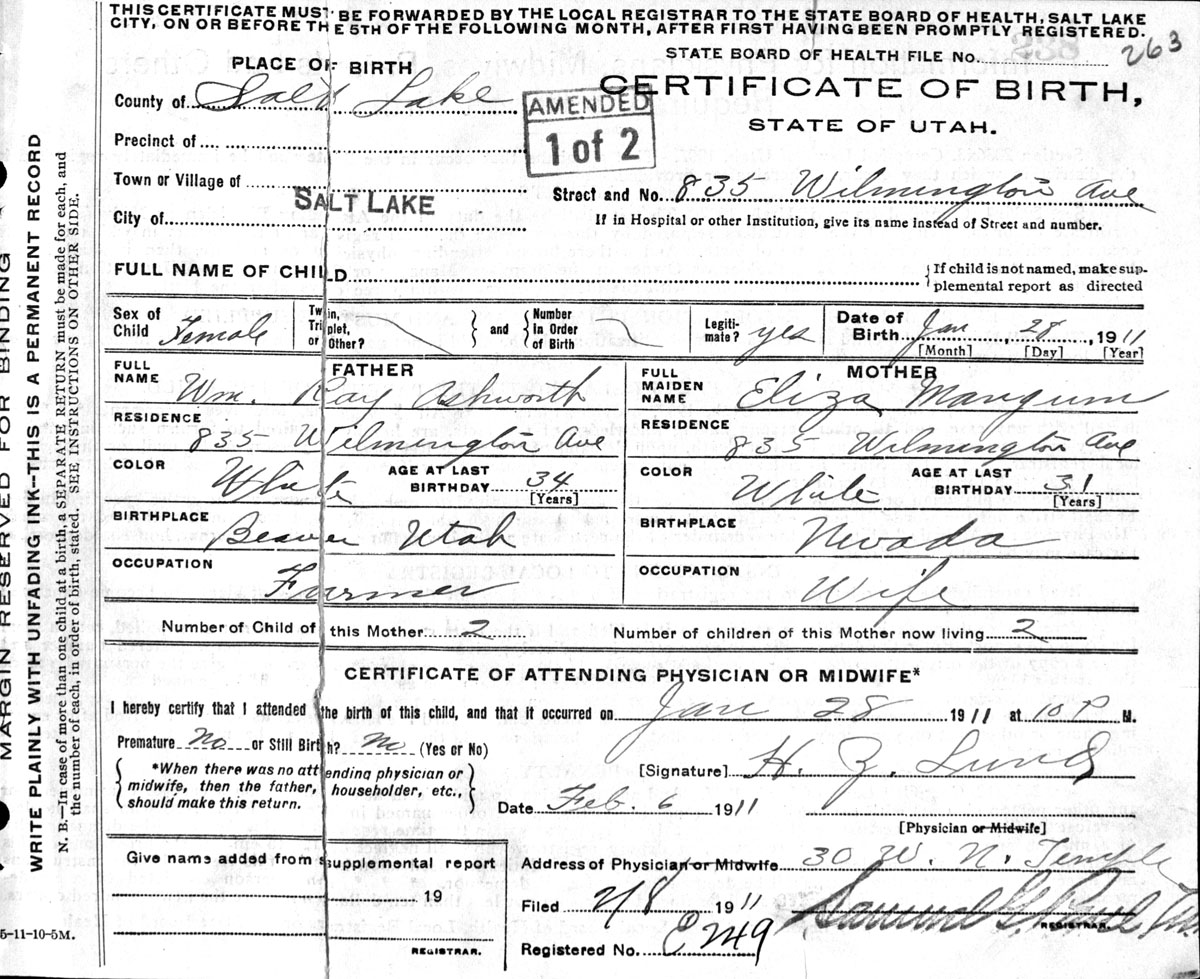 THIS CERTIFICATE MUST BE FORWARDED BY THE LOCAL REGISTRAR TO THE STATE BOARD OF HEALTH, SALT LAKE
CITY, ON OR BEFORE THE 5TH OF THE FOLLOWING MONTH, AFTER FIRST HAVING BEEN PROMPTLY REGISTERED.
STATE BOARD OF HEALTH FILE No. 263
PLACE OF BIRTH
CERTIFICATE OF BIRTH,
STATE OF UTAH.
County of Salt Lake
AMENDED
1 of 2
Precinct of
Town or Village of
Street and No. 835 Wilmington Ave
City of SALT LAKE
If in Hospital or other Institution, give its name instead of Street and number.
FULL NAME OF CHILD
If child is not named, make sup-
plemental report as directed
Sex of Child Female
Twin, Triplet, or Other?
and
Number In Order of Birth
Legiti-mate? yes
Date of Birth Jan, 28, 1911
[Month] [Day] [Year]
FATHER
FULL NAME Wm. Ray Ashworth
RESIDENCE 835 Wilmington Ave
COLOR White AGE AT LAST BIRTHDAY 34 [Years]
BIRTHPLACE Beaver Utah
OCCUPATION Farmer
MOTHER
FULL MAIDEN NAME Eliza Mangum
RESIDENCE 835 Wilmington Ave
COLOR White AGE AT LAST BIRTHDAY 31 [Years]
BIRTHPLACE Nevada
OCCUPATION Wife
Number of Child of this Mother 2 Number of children of this Mother now living 2
CERTIFICATE OF ATTENDING PHYSICIAN OR MIDWIFE*
I hereby certify that I attended the birth of this child, and that it occurred on Jan 28 1911 at 10 P M.
Premature No or Still Birth? No (Yes or No)
*When there was no attending physician or
midwife, then the father, householder, etc.,
should make this return.
[Signature] H. Z. Lund
Date Feb. 6 1911
[Physician or Midwife]
Give name added from a supplemental report
19
REGISTRAR.
Address of Physician or Midwife 30 W. N. Temple
Filed 2/8 1911
REGISTRAR.
Registered No. E 249
MARGIN RESERVED FOR BINDING
WRITE PLAINLY WITH UNFADING INK—THIS IS A PERMANENT RECORD
N. B.—In case of more than one child at a birth, a SEPARATE RETURN must be made for each, and
the number of each, in order of birth, stated. SEE INSTRUCTIONS ON OTHER SIDE.
5-11-10-5M.